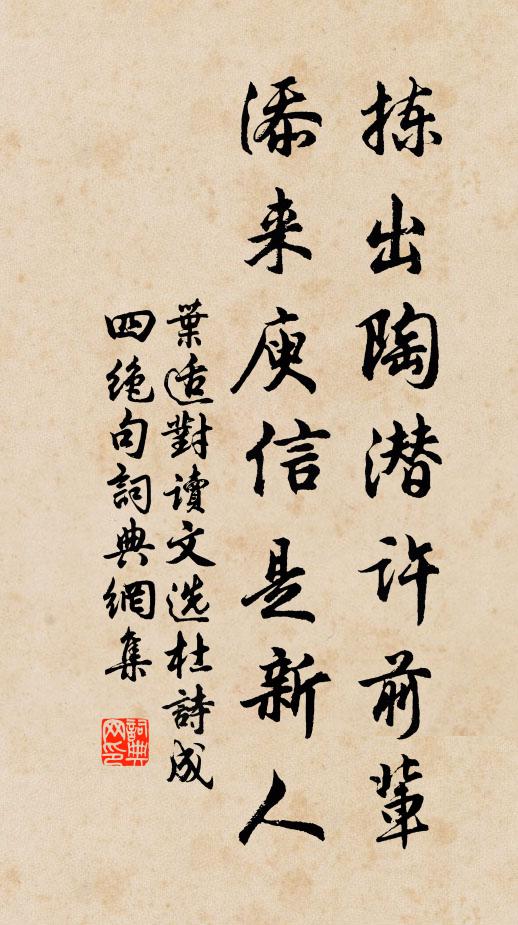 拣出陶潜许前輩
添来庾信是新人
葉适對读文选杜詩成
四絶句詞典網集
詞典网印